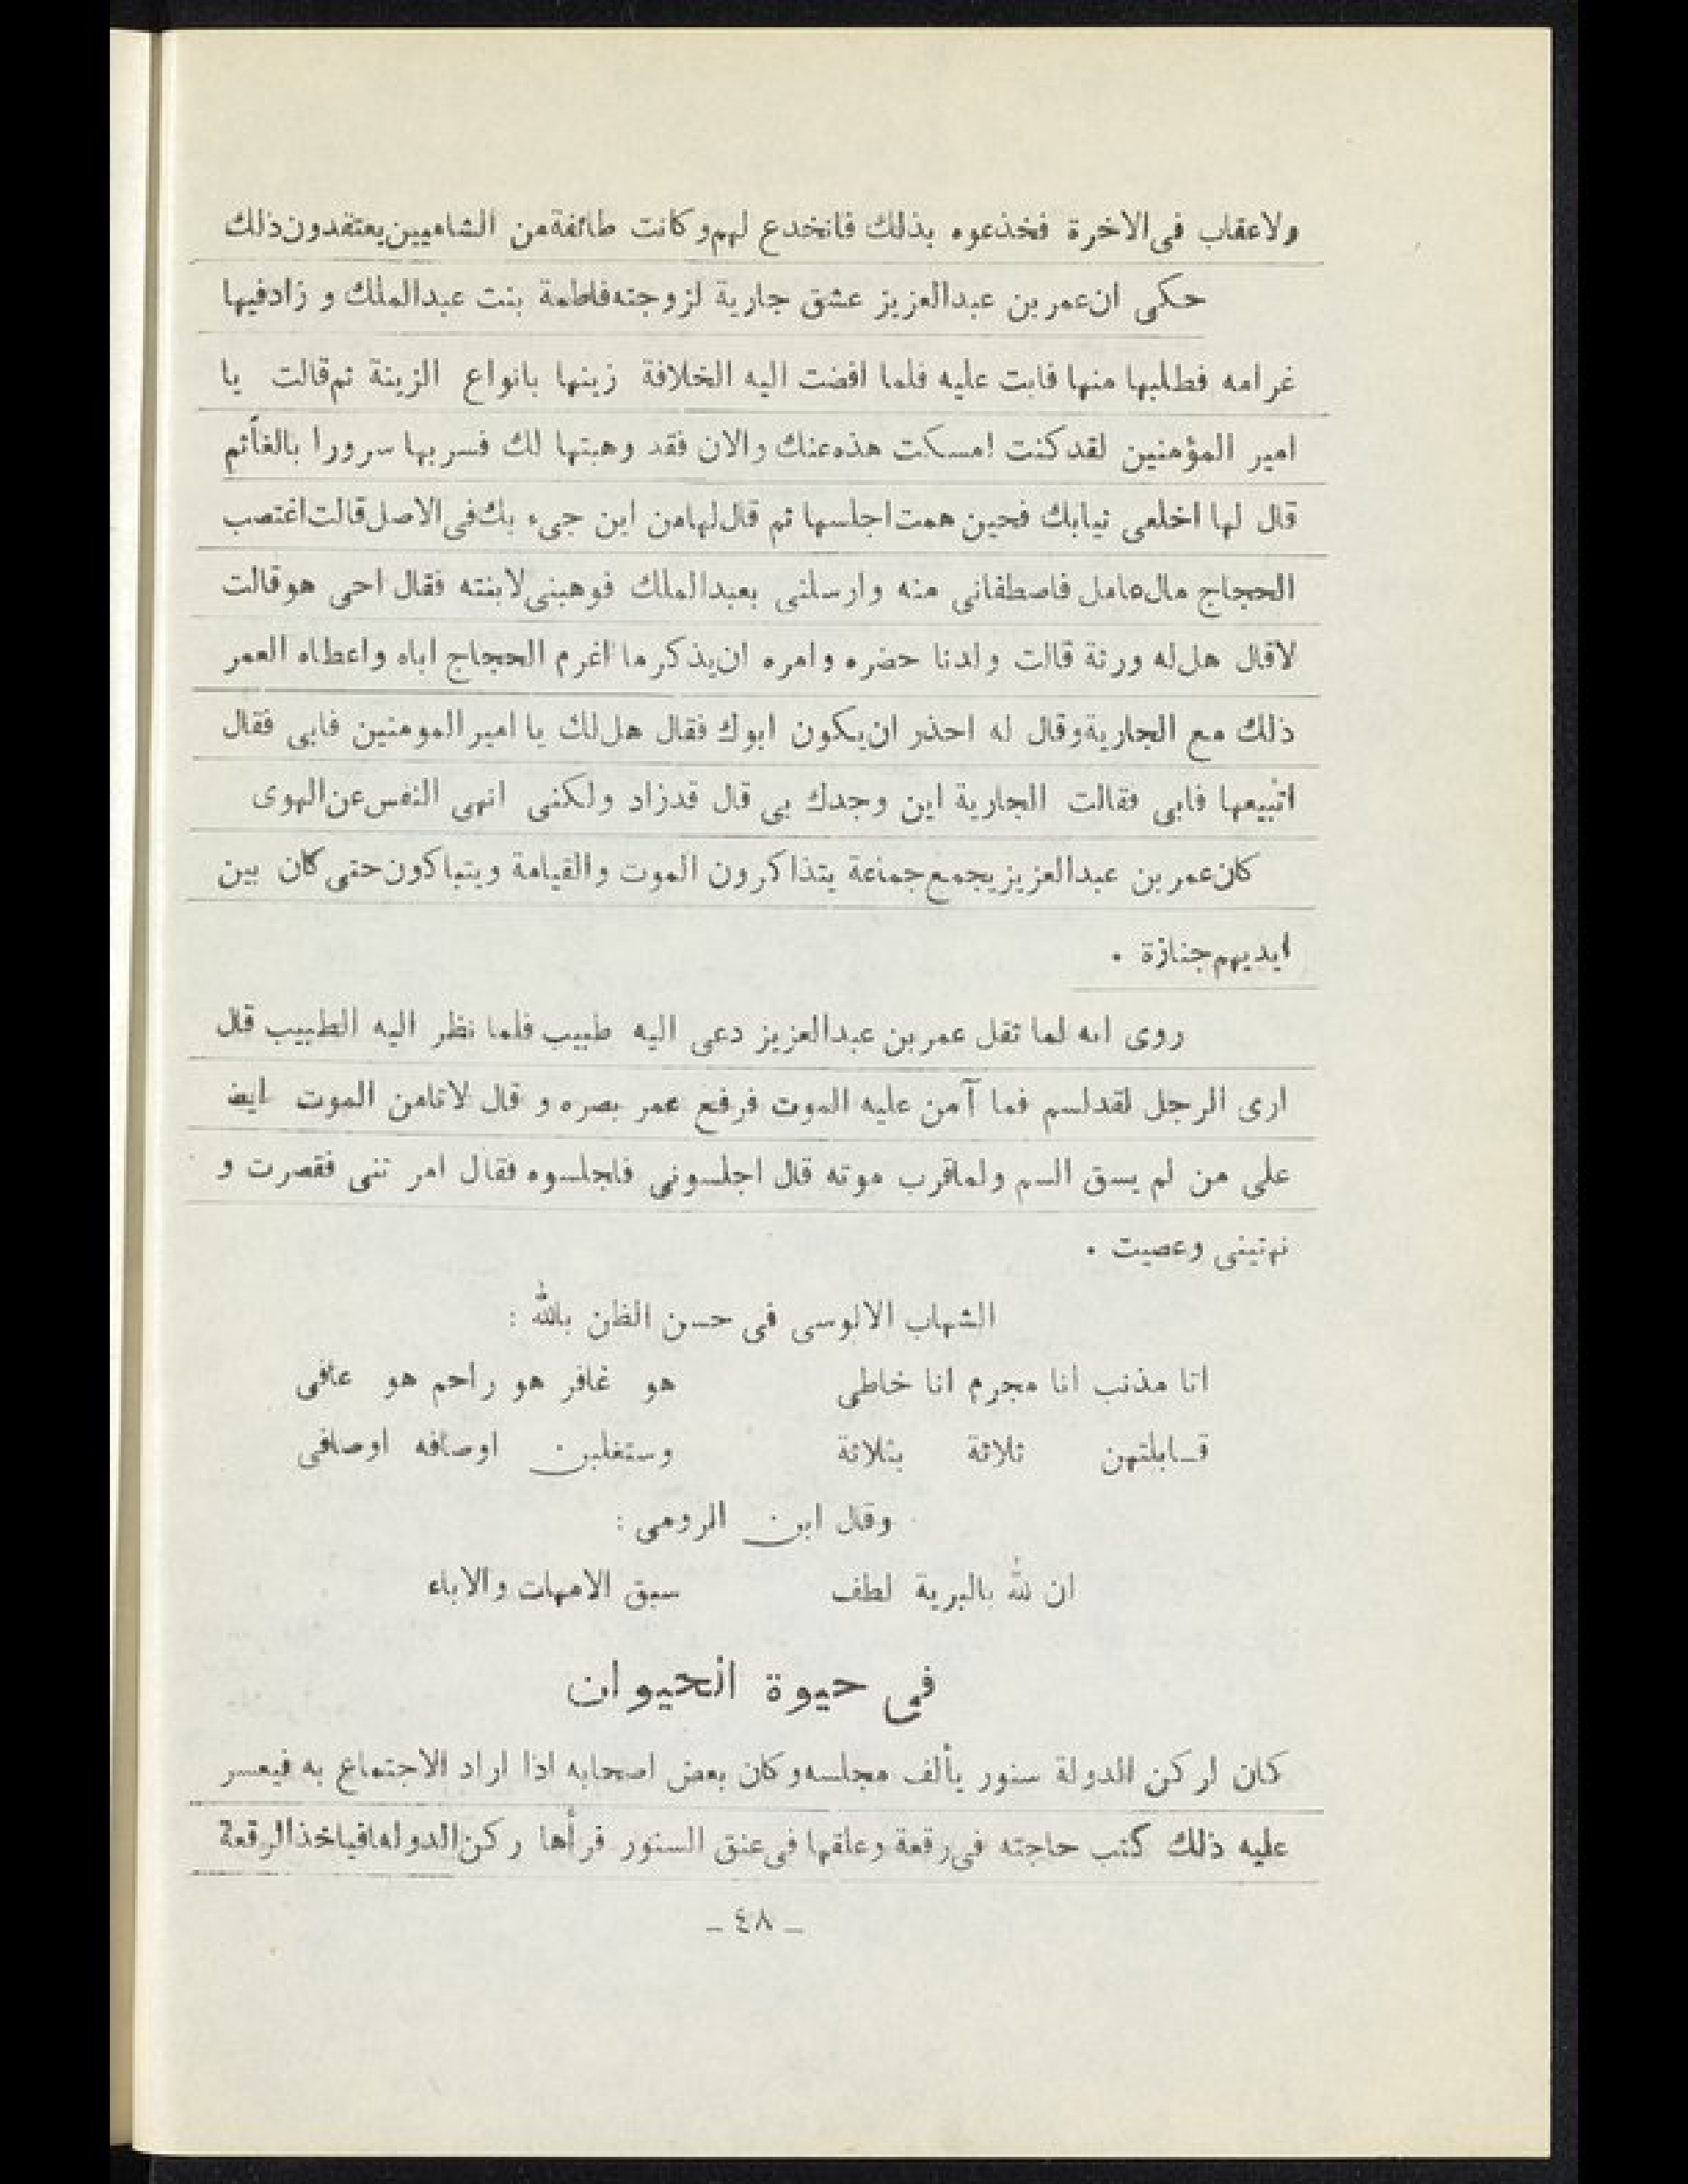 ولاعقاب فى الاخرة فخذعوه بذلك فانخدع لهم وكانت طائفة من الشاميين يعتقدون ذلك
حكى ان عمر بن عبدالعزيز عشق جارية لزوجته فاطمة بنت عبدالملك و زادفيها
غرامه فطلبها منها فابت عليه فلما افضت اليه الخلافة زينها بانواع الزينة ثم قالت يا
امير المؤمنين لقد كنت امسكت هذه عنك والان فقد وهبتها لك فسر بها سرورا بالغاًثم
قال لها اخلعى ثيابك فحين همت اجلسها ثم قال لها من اين جىء بك فى الاصل قالت اغتصب
الحجاج مال عامل فاصطفانى منه وارسلنى بعبدالملك فوهبنى لابنته فقال احى هو قالت
لاقال هل له ورثة قالت ولدنا حضره وامره ان يذكر ما اغرم الحجاج اباه واعطاه العمر
ذلك مع الجارية وقال له احذر ان يكون ابوك فقال هل لك يا امير المومنين فابى فقال
اتبيعها فابى فقالت الجارية اين وجدك بى قال قدزاد ولكنى انهى النفس عن الهوى
كان عمر بن عبدالعزيز يجمع جماعة يتذاكرون الموت والقيامة ويتباكون حتى كان بين
ايديهم جنازة .
روى انه لما ثقل عمر بن عبدالعزيز دعى اليه طبيب فلما نظر اليه الطبيب قال
ارى الرجل لقدلسم فما آمن عليه الموت فرفع عمر بصره و قال لاتامن الموت ايضا
على من لم يسق السم ولماقرب موته قال اجلسونى فاجلسوه فقال امر تنى فقصرت و
نهتينى وعصيت .
الشهاب الالوسى فى حسن الظن بالله :
انا مذنب انا مجرم انا خاطى هو غافر هو راحم هو عافى
قـابلتهن ثلاثة بثلاثة وستغلبن اوصافه اوصافى
وقال ابن الرومى :
ان لله بالبرية لطف سبق الامهات والاباء
فى حيوة الحيوان
كان لركن الدولة سنور يألف مجلسه وكان بعض اصحابه اذا اراد الاجتماع به فيعسر
عليه ذلك كتب حاجته فى رقعة وعلقها فى عنق السنور فرأها ركن الدوله فياخذ الرقعة
ـ ٤٨ ـ